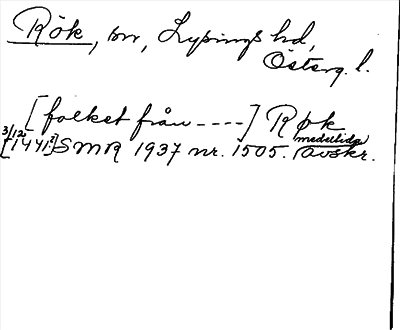 Rök, sn, Lysings hd,
Österg. l.
[folket från ----] Røk
3/12 medeltida
[1441?] SMR 1937 nr. 1505. avskr.